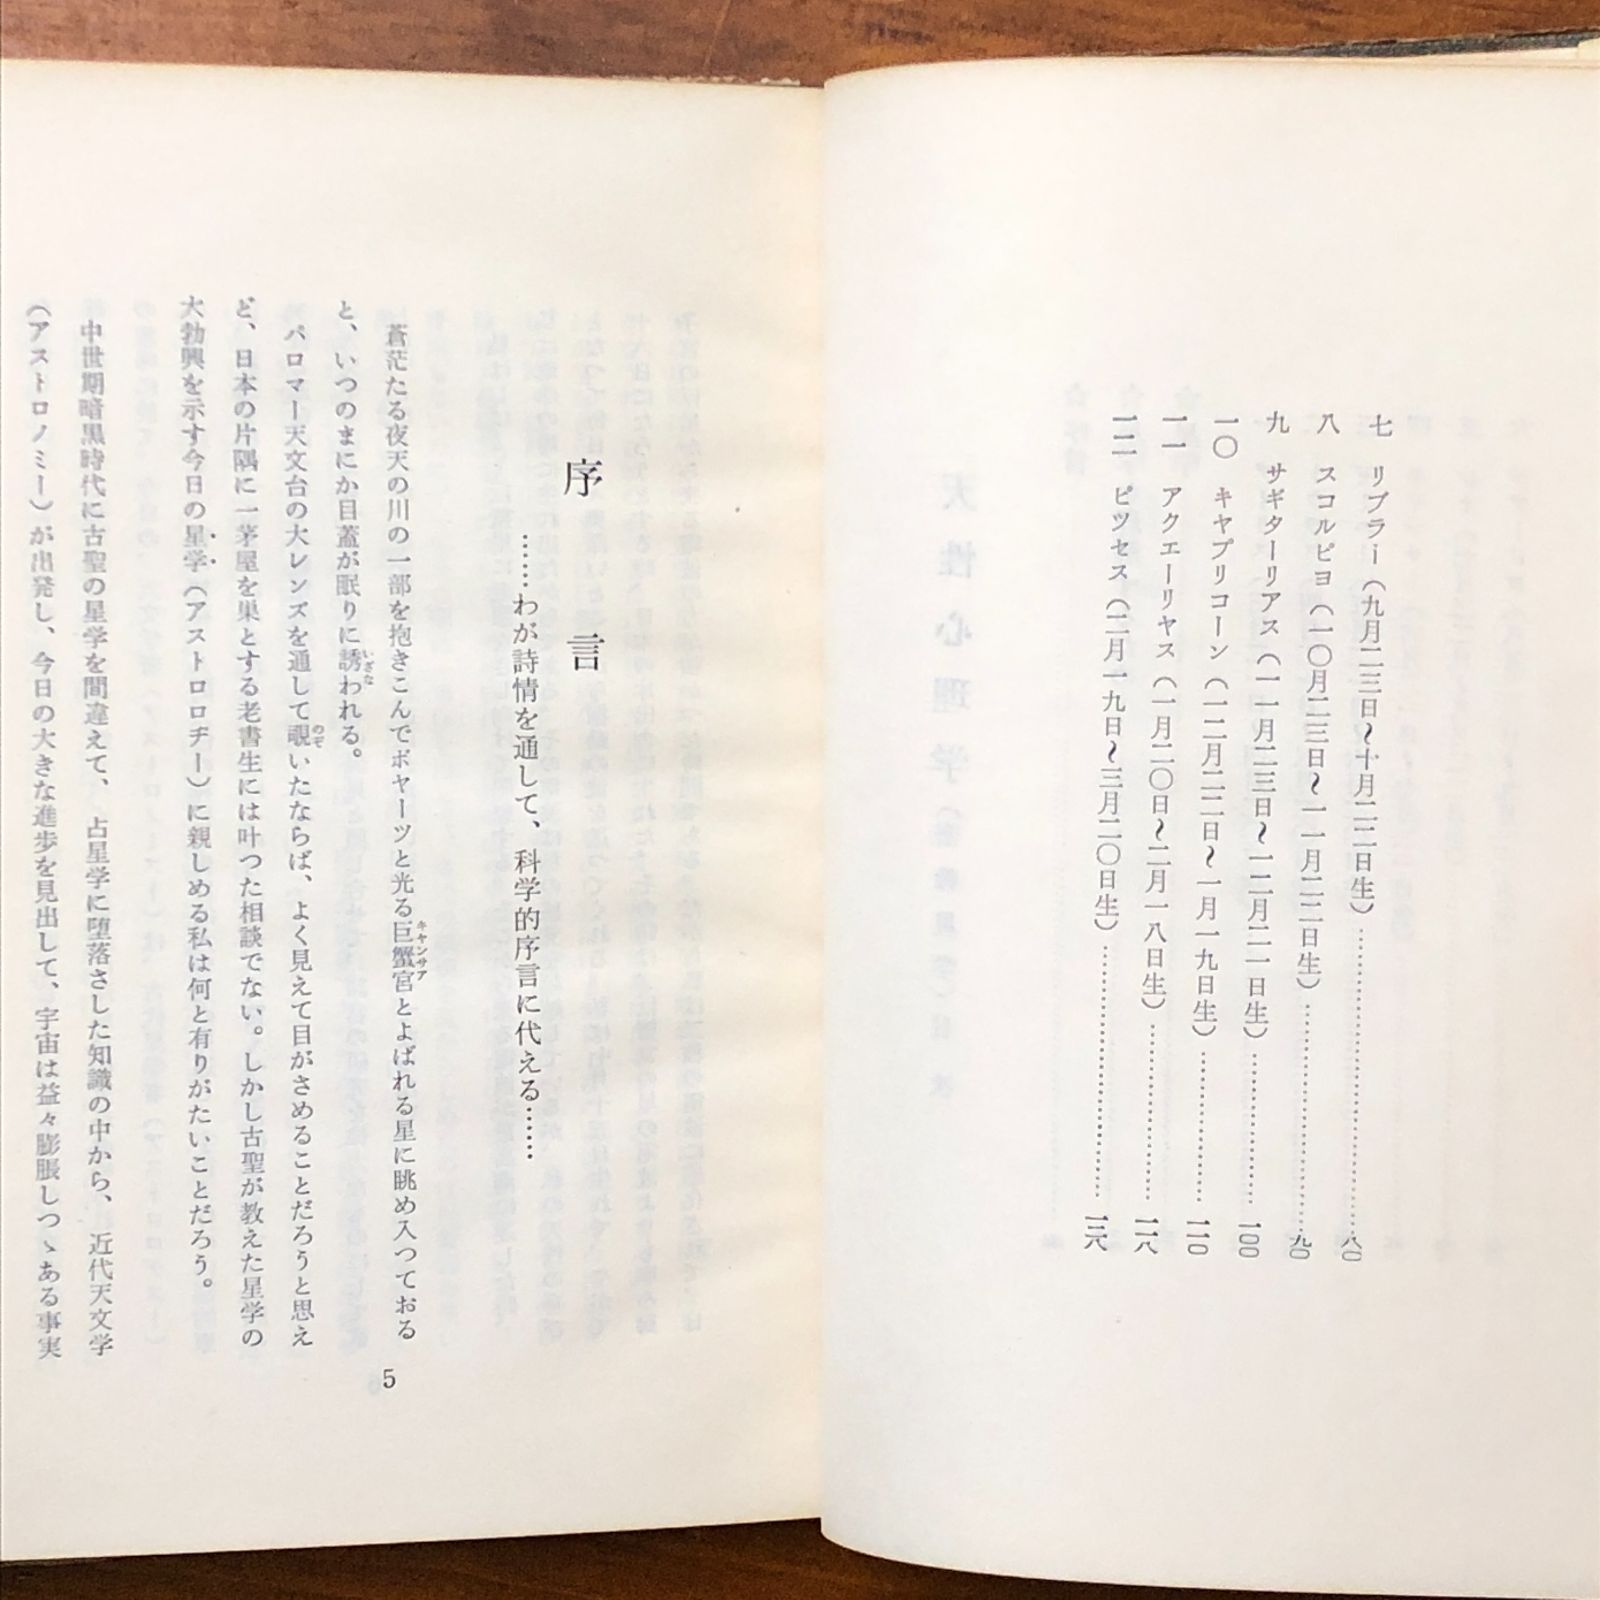 七　リブラー（九月二三日〜十月二二日生）……………………八〇
八　スコルピヨ（一〇月二三日〜一一月二二日生）……………………九〇
九　サギターリアス（一一月二三日〜一二月二一日生）……………………一〇〇
一〇　キャプリコーン（一二月二二日〜一月一九日生）……………………一一〇
一一　アクエーリヤス（一月二〇日〜二月一八日生）……………………一一八
一二　ピツセス（二月一九日〜三月二〇日生）……………………一二八
序言
……わが詩情を通して、科学的序言に代える……
蒼茫たる夜天の川の一部を抱きこんでボヤーツと光る巨蟹宮（キャンサア）とよばれる星に眺め入つておる
と、いつのまにか目蓋が眠りに誘（いざな）われる。
パロマー天文台の大レンズを通して覗（のぞ）いたならば、よく見えて目がさめることだろうと思え
ど、日本の片隅に一茅屋を巣とする老書生には叶つた相談でない。しかし古聖が教えた星学の
大勃興を示す今日の星学（アストロロヂー）に親しめる私は何と有りがたいことだろう。
中世期暗黒時代に古聖の星学を間違えて、占星学に堕落さした知識の中から、近代天文学
（アストロノミー）が出発し、今日の大きな進歩を見出して、宇宙は益々膨脹しつゝある事実
5